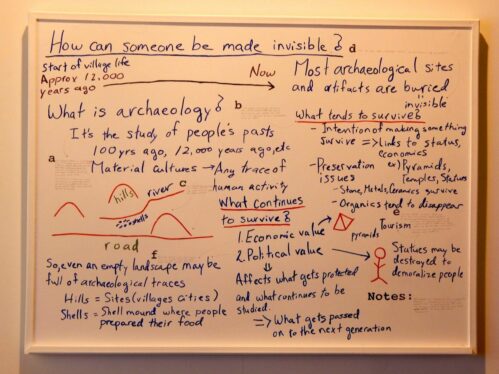 How can someone be made invisible?
d
Start of village life
Approx 12,000
years ago
Now
What is archaeology?
b
It's the study of people's pasts
100 yrs ago, 12,000 years ago, etc
a
Material cultures → Any trace of
human activity
hills
river
c
shells
road
f
So, even an empty landscape may be
full of archaeological traces
Hills = Sites (villages cities)
Shells = Shell mound where people
prepared their food
What continues
to survive?
1. Economic value
2. Political value
Affects what gets protected
and what continues to be
studied.
⇒ What gets passed
on to the next generation
Most archaeological sites
and artifacts are buried
invisible
What tends to survive?
- Intention of making something
survive ⇒ Links to status,
economics
- Preservation
issues
ex) Pyramids,
Temples, Statues
- Stone, Metals, Ceramics survive
- Organics tend to disappear
e
Tourism
pyramids
Statues may be
destroyed to
demoralize people
Notes: